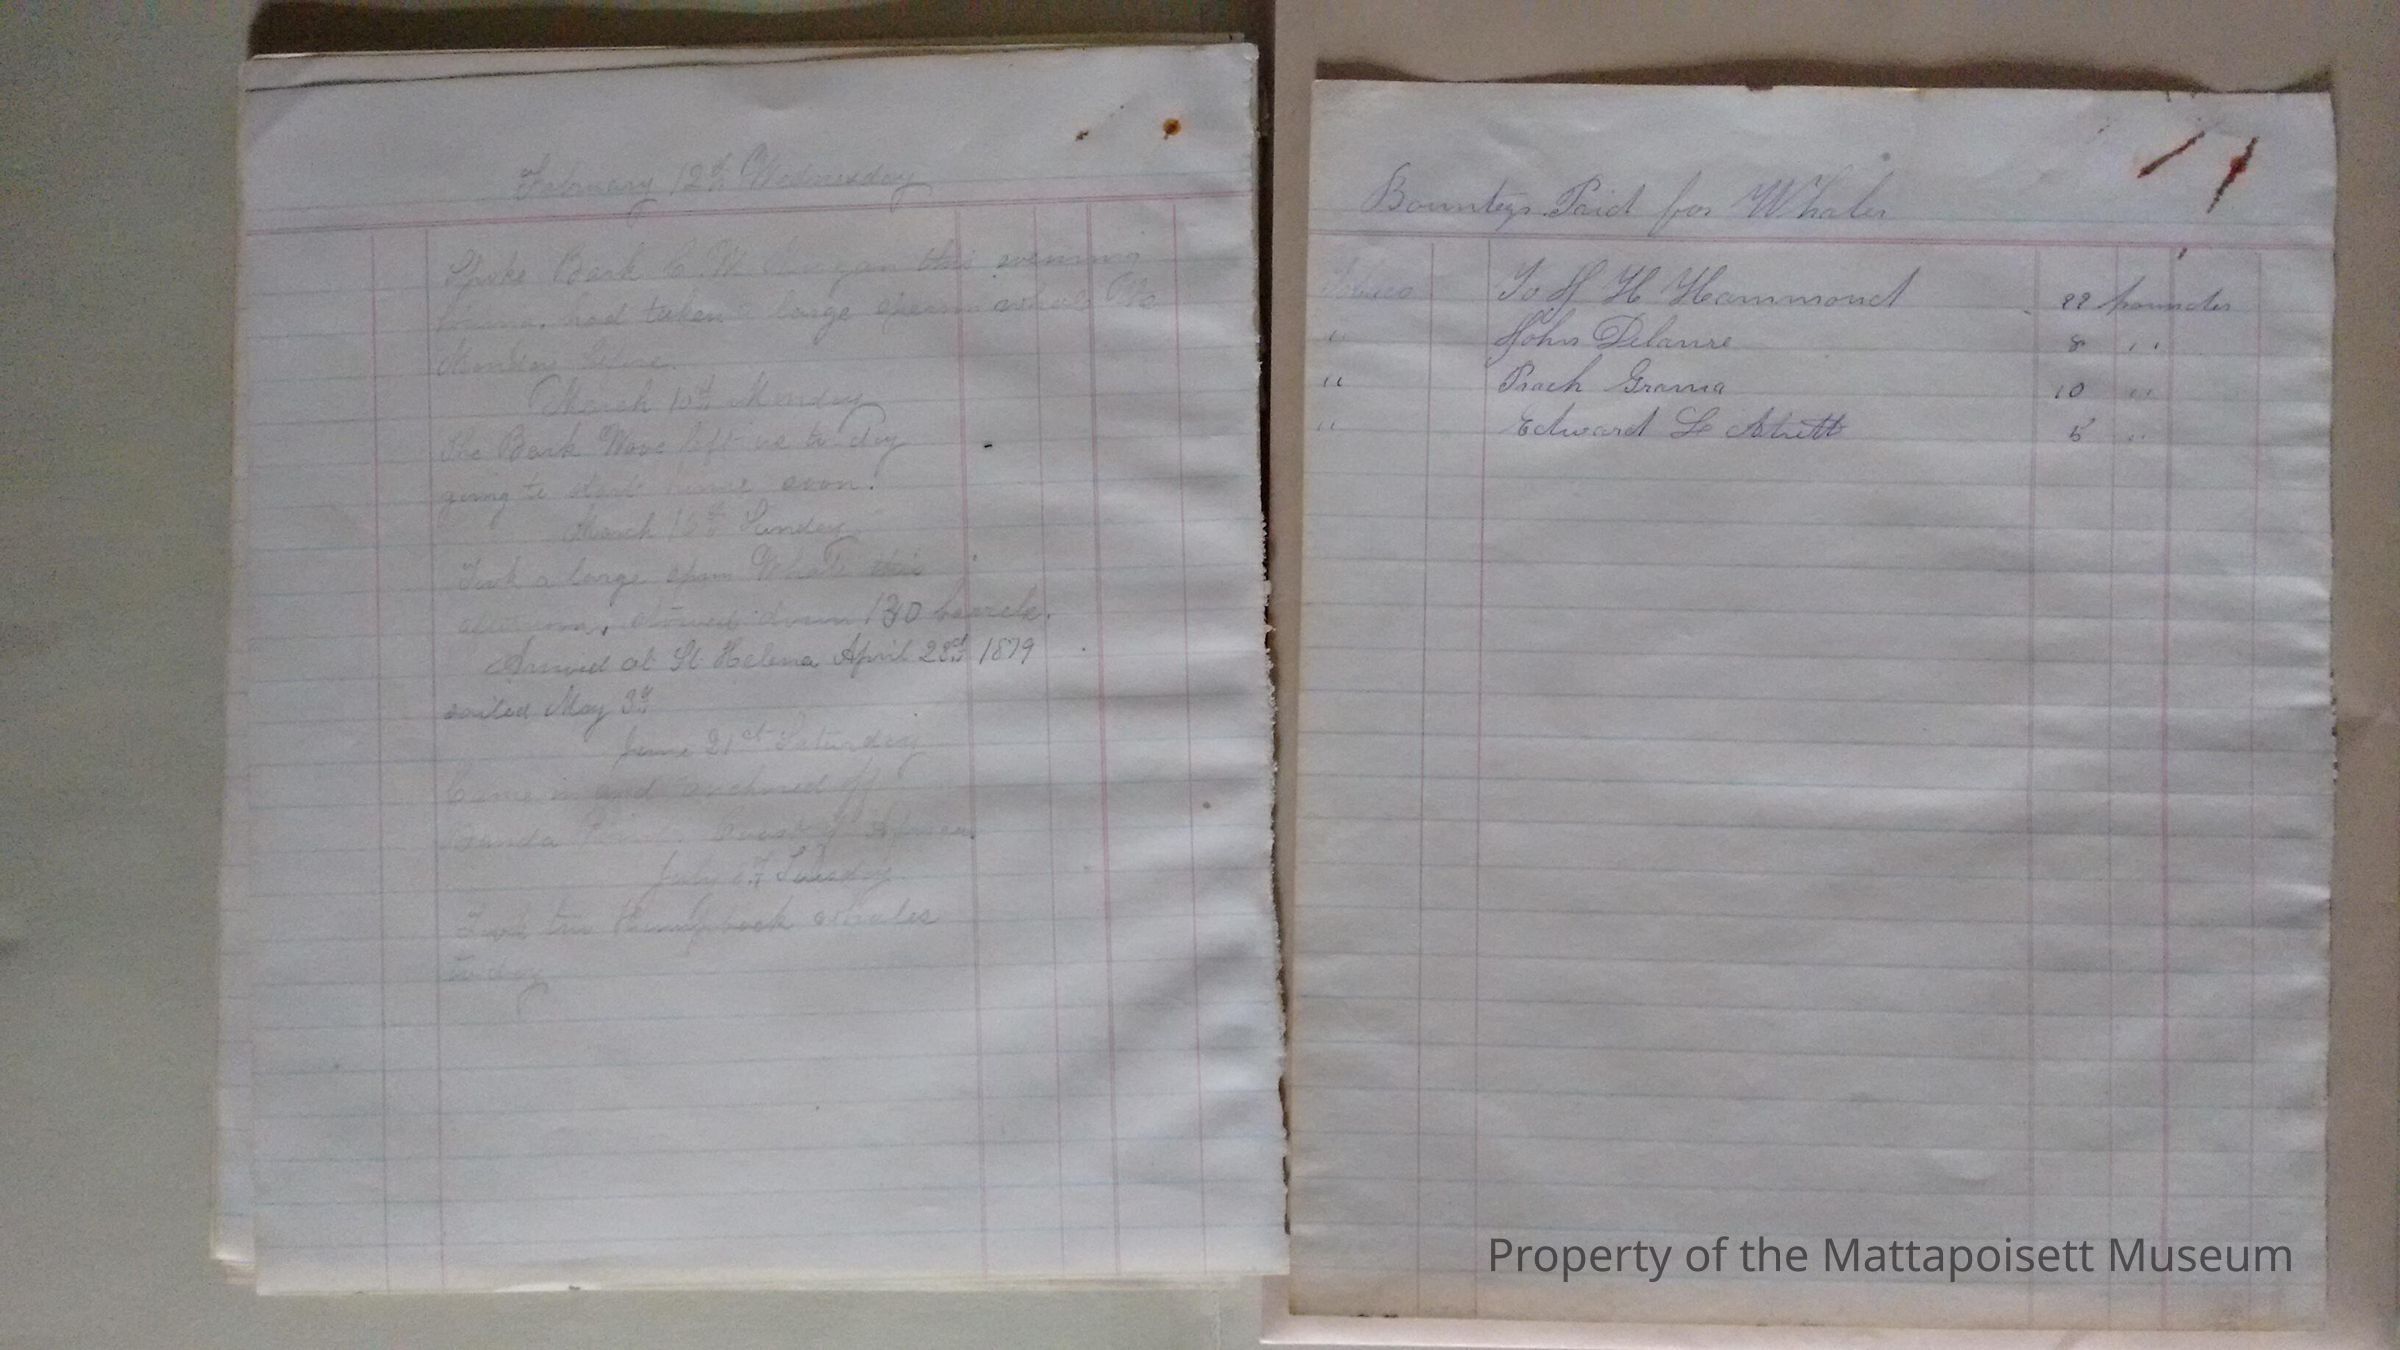 February 12th Wednesday
Spoke Bark C. W. Morgan this evening
had taken a large sperm whale
Monday before.
March 10th Monday
The Bark Wave left us to day
going to start home soon.
March 16th Sunday
Took a large sperm Whale this
stowed down 130 barrels.
Arrived at St Helena April 22nd 1879
sailed May 3d
June 21st Saturday
Came in and anchored off
Banda Point. Coast of Africa.
July Tuesday
Took two Humpback whales
to day
Bountys Paid for Whales
Tobacco To H H Hammond 22 pounds
" John Delaure 8 "
" Grama 10 "
" Edward L 5 "
Property of the Mattapoisett Museum